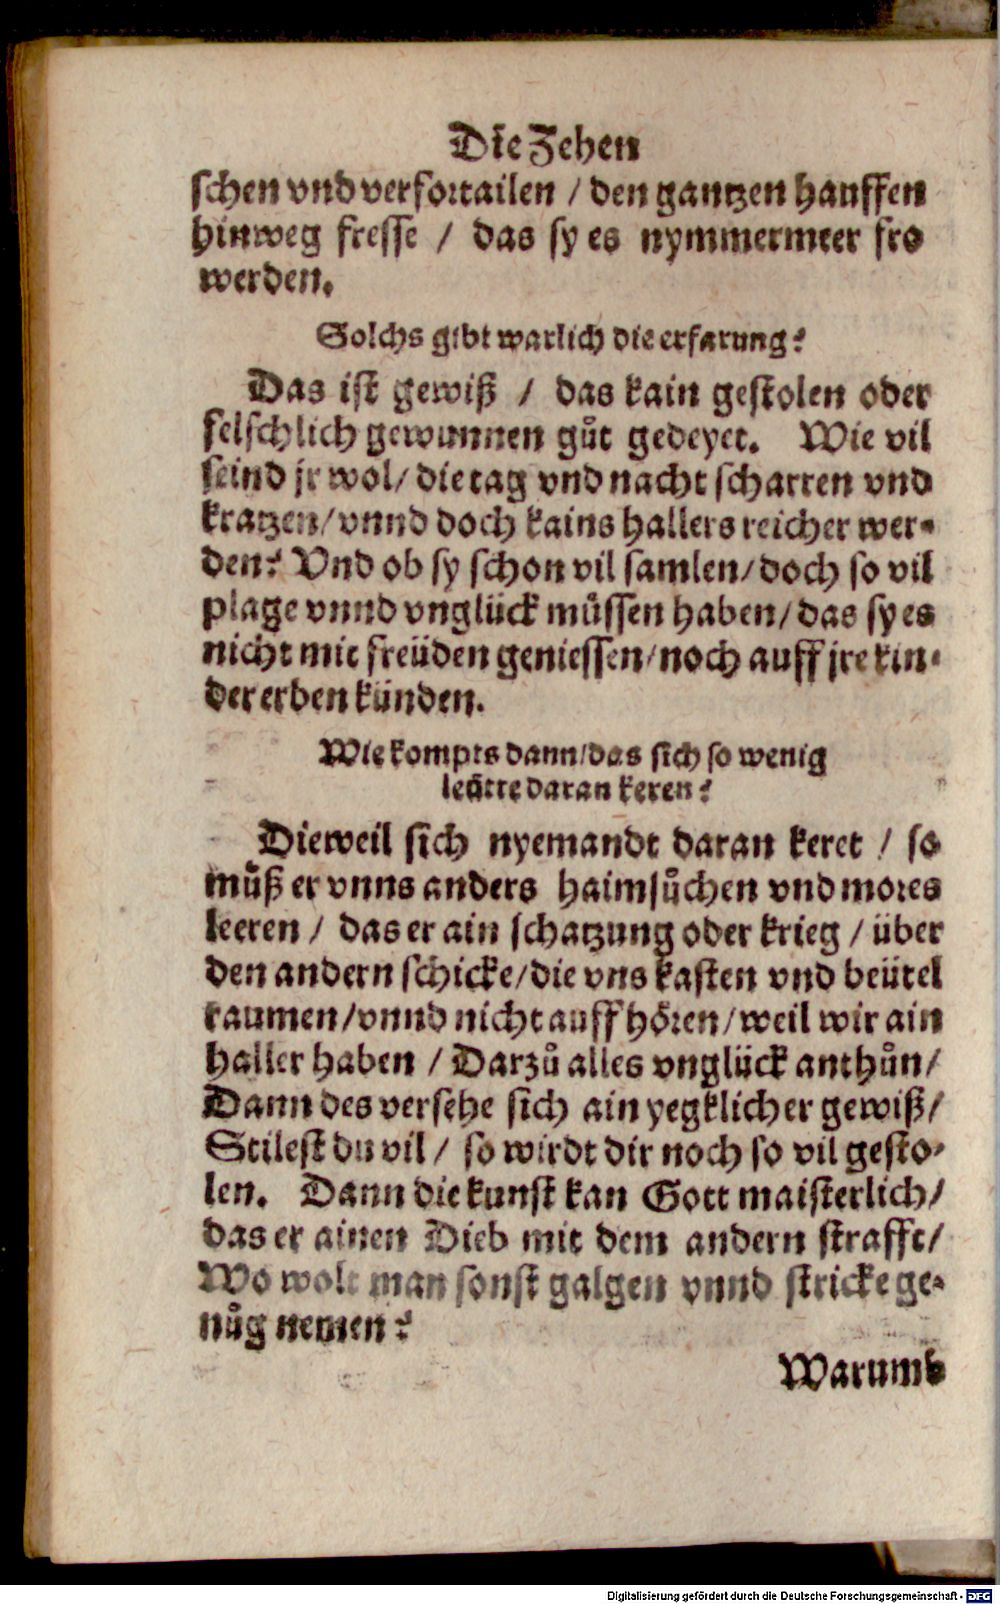 Die Zehen
schen vnd verfortailen / den gantzen hauffen
hinweg fresse / das sy es nymmermeer fro
werden.
Solchs gibt warlich die erfarung?
Das ist gewiß / das kain gestolen oder
felschlich gewunnen gůt gedeyet. Wie vil
seind jr wol / die tag vnd nacht scharren vnd
kratzen / vnnd doch kains hallers reicher wer-
den? Vnd ob sy schon vil samlen / doch so vil
plage vnnd vnglück müssen haben / das sy es
nicht mit freüden geniessen / noch auff jre kin-
der erben künden.
Wie kompts dann / das sich so wenig
leütte daran keren?
Dieweil sich nyemandt daran keret / so
můß er vnns anders haimsůchen vnd mores
leeren / das er ain schatzung oder krieg / über
den andern schicke / die vns kasten vnd beütel
raumen / vnnd nicht auff hören / weil wir ain
haller haben / Darzů alles vnglück anthůn /
Dann des versehe sich ain yegklicher gewiß /
Stilest du vil / so wirdt dir noch so vil gesto-
len. Dann die kunst kan Gott maisterlich /
das er ainen Dieb mit dem andern strafft /
Wo wolt man sonst galgen vnnd stricke ge-
nůg nemen?
Warumb
Digitalisierung gefördert durch die Deutsche Forschungsgemeinschaft - DFG